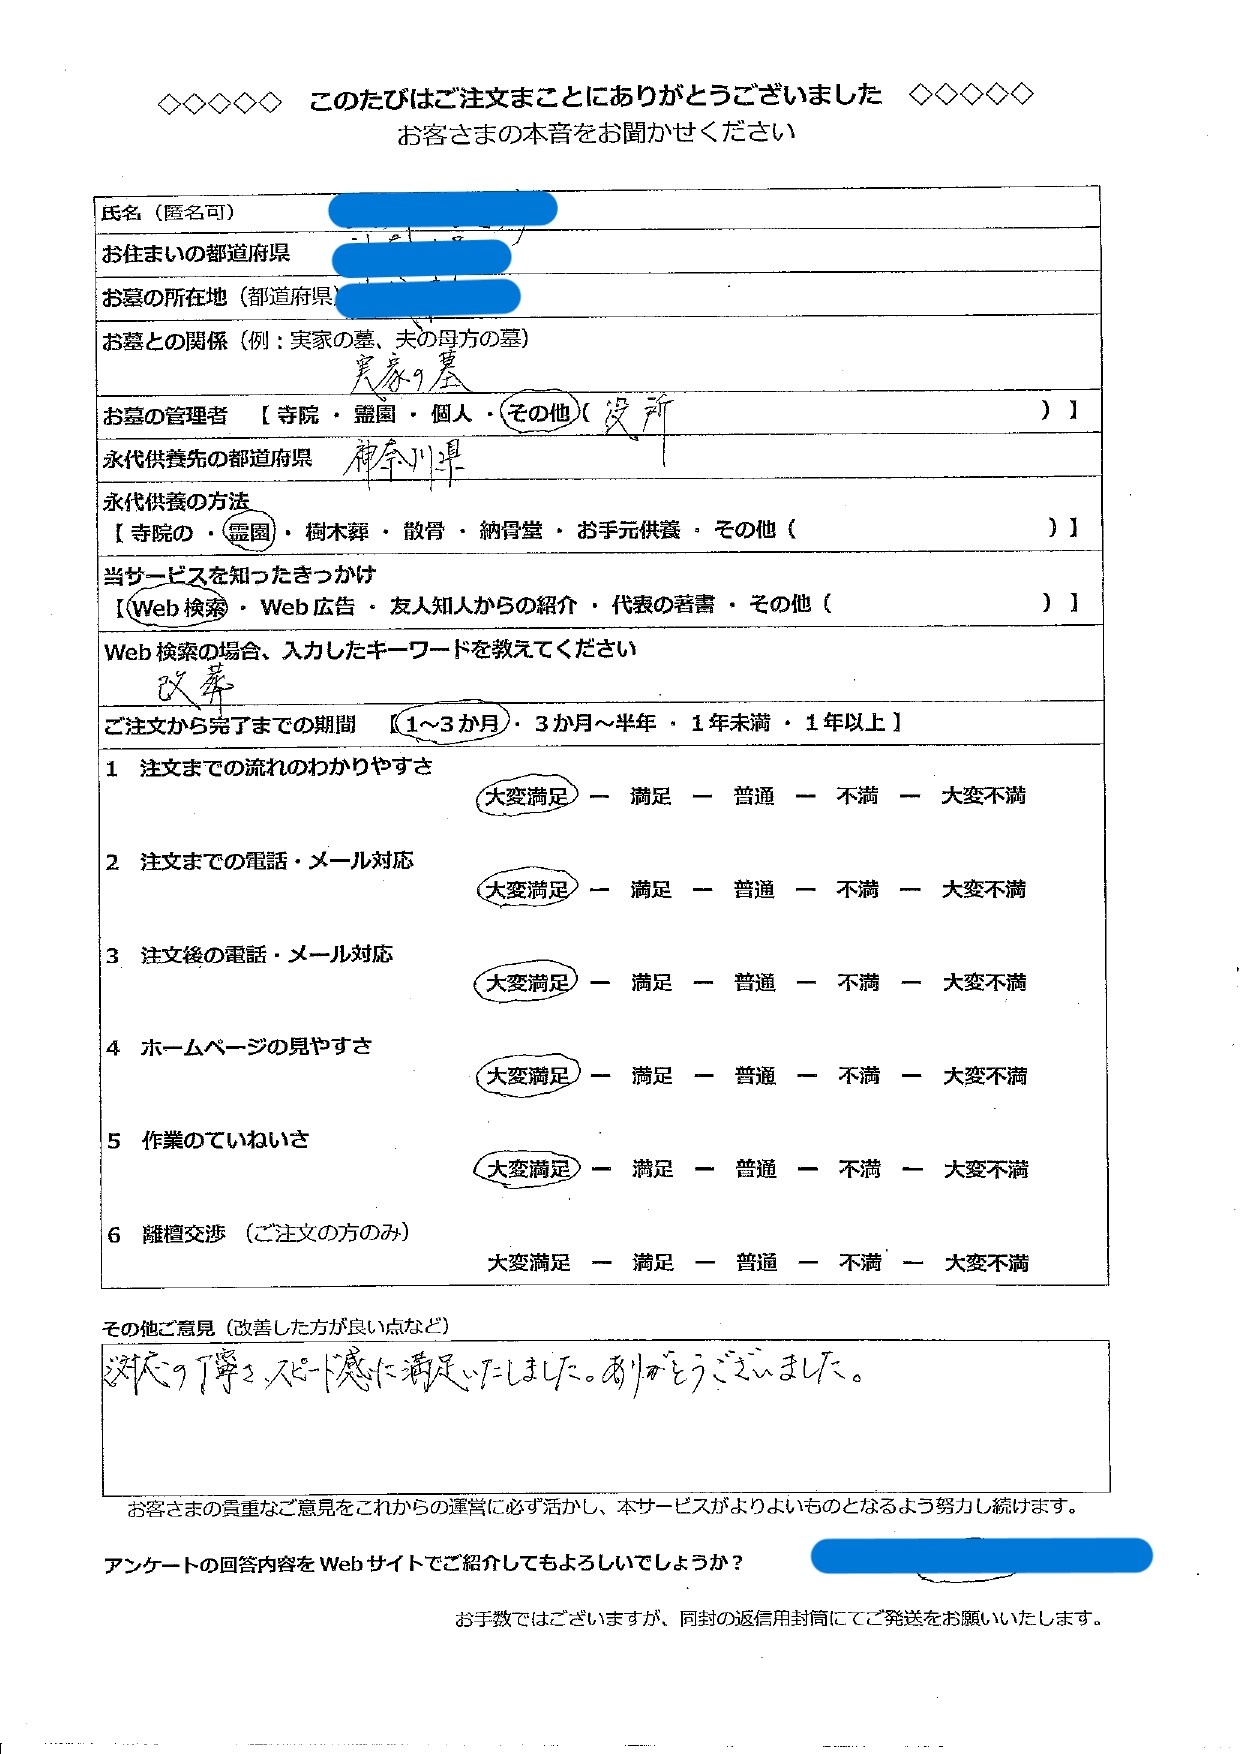 ◇◇◇◇◇ このたびはご注文まことにありがとうございました ◇◇◇◇◇
お客さまの本音をお聞かせください
氏名（匿名可）
お住まいの都道府県
お墓の所在地（都道府県）
お墓との関係（例：実家の墓、夫の母方の墓）
実家の墓
お墓の管理者 【 寺院 ・ 霊園 ・ 個人 ・ その他（ 役所 ） 】
永代供養先の都道府県 神奈川県
永代供養の方法
【 寺院の ・ 霊園 ・ 樹木葬 ・ 散骨 ・ 納骨堂 ・ お手元供養 ・ その他（ ） 】
当サービスを知ったきっかけ
【 Web 検索 ・ Web 広告 ・ 友人知人からの紹介 ・ 代表の著書 ・ その他（ ） 】
Web 検索の場合、入力したキーワードを教えてください
改葬
ご注文から完了までの期間 【 1～3 か月 ・ 3 か月～半年 ・ 1 年未満 ・ 1 年以上 】
1 注文までの流れのわかりやすさ
大変満足 － 満足 － 普通 － 不満 － 大変不満
2 注文までの電話・メール対応
大変満足 － 満足 － 普通 － 不満 － 大変不満
3 注文後の電話・メール対応
大変満足 － 満足 － 普通 － 不満 － 大変不満
4 ホームページの見やすさ
大変満足 － 満足 － 普通 － 不満 － 大変不満
5 作業のていねいさ
大変満足 － 満足 － 普通 － 不満 － 大変不満
6 離檀交渉 （ご注文の方のみ）
大変満足 － 満足 － 普通 － 不満 － 大変不満
その他ご意見（改善した方が良い点など）
対応の丁寧さ、スピード感に満足いたしました。ありがとうございました。
お客さまの貴重なご意見をこれからの運営に必ず活かし、本サービスがよりよいものとなるよう努力し続けます。
アンケートの回答内容を Web サイトでご紹介してもよろしいでしょうか？
お手数ではございますが、同封の返信用封筒にてご発送をお願いいたします。